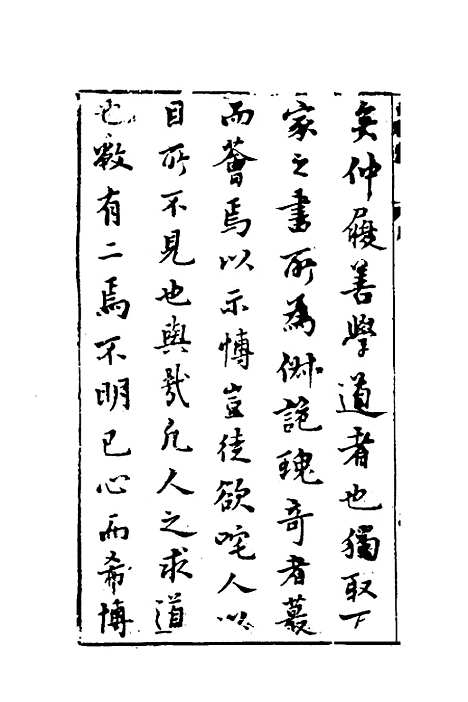 矣仲履善學道者也獨取下
家之書所為俶詭瑰奇者叢
而薈焉以示博豈徒欲咤人以
目所不見也與哉凡人之求道
也敝有二焉不明己心而希博